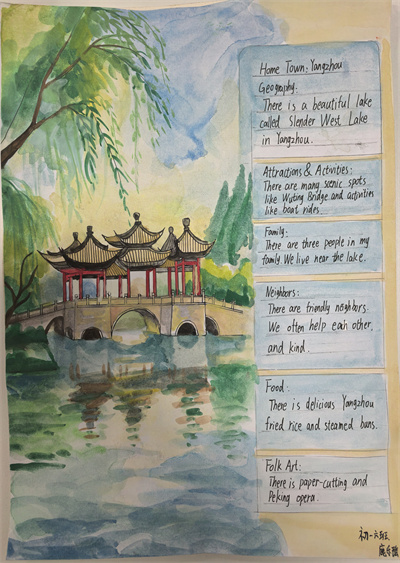 Home Town: Yangzhou
Geography:
There is a beautiful lake
called Slender West Lake
in Yangzhou.
Attractions & Activities:
There are many scenic spots
like Wuting Bridge and activities
like boat rides.
Family:
There are three people in my
family. We live near the lake.
Neighbors:
There are friendly neighbors.
We often help each other.
and kind.
Food:
There is delicious Yangzhou
fried rice and steamed buns.
Folk Art:
There is paper-cutting and
Peking opera.
初一六班